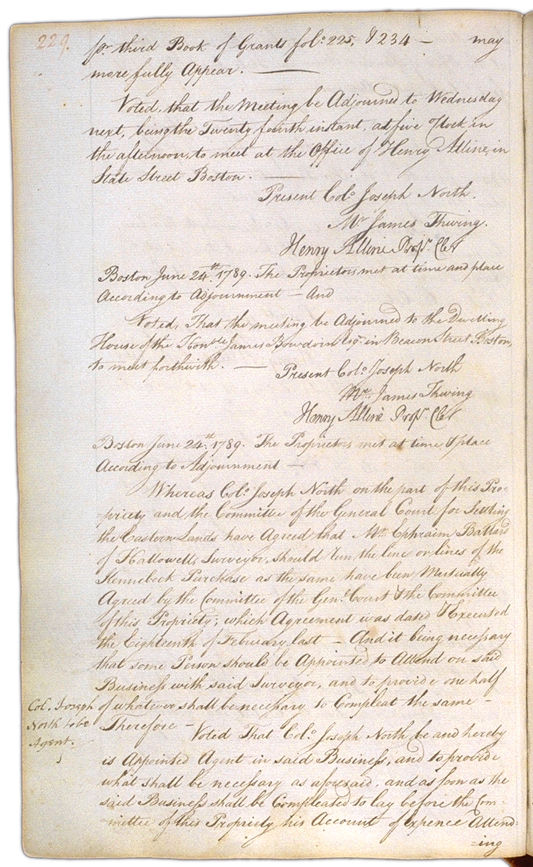 229.
pr. third Book of Grants fol.o 225, & 234 — may
more fully Appear. —
Voted, that the Meeting be Adjourned to Wednesday
next, being the Twenty fourth instant, at five oClock in
the afternoon, to meet at the Office of Henry Alline, in
State Street Boston. —
Present Col.o Joseph North.
Mr. James Thwing.
Henry Alline Prop.rs Clerk
Boston June 24.th 1789. The Proprietors met at time and place
According to Adjournment — And
Voted, That the meeting be Adjourned to the Dwelling
House of the Hon.ble James Bowdoin Esq.r in Beacon Street Boston,
to meet forthwith. —
Present Col.o Joseph North
Mr. James Thwing
Henry Alline Prop.rs Clerk
Boston June 24.th 1789. The Proprietors met at time & place
According to Adjournment —
Whereas Col.o Joseph North on the part of this Pro-
priety and the Committee of the General Court for Settling
the Eastern Lands have Agreed that Mr. Ephraim Ballard
of Hallowell, Surveyor, should run the line or lines of the
Kennebeck Purchase as the same have been Mutually
Agreed by the Committee of the Gen.l Court & the Committee
of this Propriety; which Agreement was dated & Executed
the Eighteenth of February last — And it being necessary
that some Person should be Appointed to Attend on said
Business with said Surveyor, and to provide one half
of whatever shall be necessary to Compleat the same —
Col. Joseph
North to be
Agent.
Therefore — Voted That Col.o Joseph North, be and hereby
is Appointed Agent in said Business, and to provide
what shall be necessary as aforesaid, and as soon as the
said Business shall be Compleated to lay before the Com-
mittee of this Propriety his Account of Expence Attend-
=ing